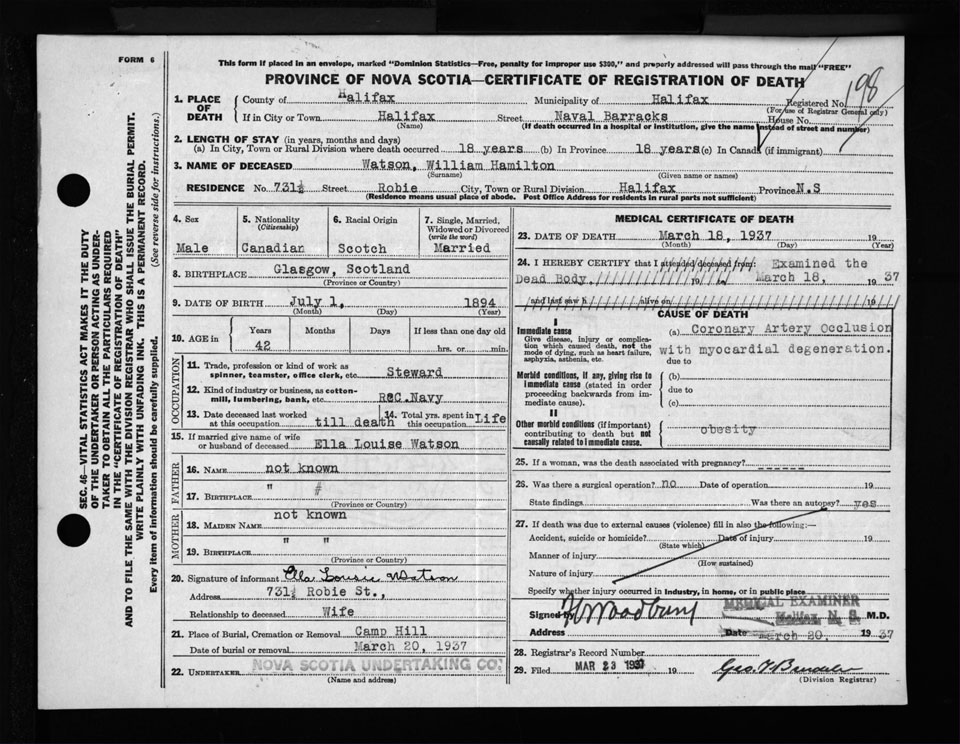 FORM 6
This form if placed in an envelope, marked "Dominion Statistics—Free, penalty for improper use $300," and properly addressed will pass through the mail "FREE"
PROVINCE OF NOVA SCOTIA—CERTIFICATE OF REGISTRATION OF DEATH
198
1. PLACE OF DEATH
County of Halifax Municipality of Halifax Registered No.
(For use of Registrar General only)
If in City or Town Halifax Street Naval Barracks House No.
(Name) (If death occurred in a hospital or institution, give the name instead of street and number)
2. LENGTH OF STAY (in years, months and days)
(a) In City, Town or Rural Division where death occurred 18 years (b) In Province 18 years (c) In Canada (if immigrant)
3. NAME OF DECEASED Watson, William Hamilton
(Surname) (Given name or names)
RESIDENCE No. 731½ Street Robie City, Town or Rural Division Halifax Province N.S
(Residence means usual place of abode. Post Office Address for residents in rural parts not sufficient)
4. Sex
Male
5. Nationality
(Citizenship)
Canadian
6. Racial Origin
Scotch
7. Single, Married, Widowed or Divorced
(write the word)
Married
8. BIRTHPLACE Glasgow, Scotland
(Province or Country)
9. DATE OF BIRTH July 1, 1894
(Month) (Day) (Year)
10. AGE in
Years Months Days If less than one day old
42 hrs. or min.
OCCUPATION
11. Trade, profession or kind of work as spinner, teamster, office clerk, etc. Steward
12. Kind of industry or business, as cotton-mill, lumbering, bank, etc. RCC.Navy
13. Date deceased last worked at this occupation till death
14. Total yrs. spent in this occupation Life
15. If married give name of wife or husband of deceased Ella Louise Watson
FATHER
16. NAME not known
17. BIRTHPLACE " "
(Province or Country)
MOTHER
18. MAIDEN NAME not known
19. BIRTHPLACE " "
(Province or Country)
20. Signature of informant Ella Louise Watson
Address 731½ Robie St.,
Relationship to deceased Wife
21. Place of Burial, Cremation or Removal Camp Hill
Date of burial or removal March 20, 1937
22. UNDERTAKER NOVA SCOTIA UNDERTAKING CO.
(Name and address)
MEDICAL CERTIFICATE OF DEATH
23. DATE OF DEATH March 18, 1937 19
(Month) (Day) (Year)
24. I HEREBY CERTIFY that I attended deceased from: Examined the
Dead Body. 19 March 18, 1937
and last saw h alive on 19
CAUSE OF DEATH
I
Immediate cause
Give disease, injury or complication which caused death, not the mode of dying, such as heart failure, asphyxia, asthenia, etc.
(a) Coronary Artery Occlusion
with myocardial degeneration.
due to
Morbid conditions, if any, giving rise to immediate cause (stated in order proceeding backwards from immediate cause).
(b)
due to
(c)
II
Other morbid conditions (if important) contributing to death but not causally related to immediate cause.
obesity
25. If a woman, was the death associated with pregnancy?
26. Was there a surgical operation? no Date of operation 19
State findings Was there an autopsy? yes
27. If death was due to external causes (violence) fill in also the following:—
Accident, suicide or homicide? Date of injury 19
(State which)
Manner of injury
(How sustained)
Nature of injury
Specify whether injury occurred in Industry, in home, or in public place
Signed M.D.
MEDICAL EXAMINER
Halifax, N. S.
Address Date March 20, 1937
28. Registrar's Record Number
29. Filed MAR 23 1937 19
(Division Registrar)
SEC. 46—VITAL STATISTICS ACT MAKES IT THE DUTY
OF THE UNDERTAKER OR PERSON ACTING AS UNDER-
TAKER TO OBTAIN ALL THE PARTICULARS REQUIRED
IN THE "CERTIFICATE OF REGISTRATION OF DEATH"
AND TO FILE THE SAME WITH THE DIVISION REGISTRAR WHO SHALL ISSUE THE BURIAL PERMIT.
WRITE PLAINLY WITH UNFADING INK. THIS IS A PERMANENT RECORD.
Every item of information should be carefully supplied. (See reverse side for instructions.)